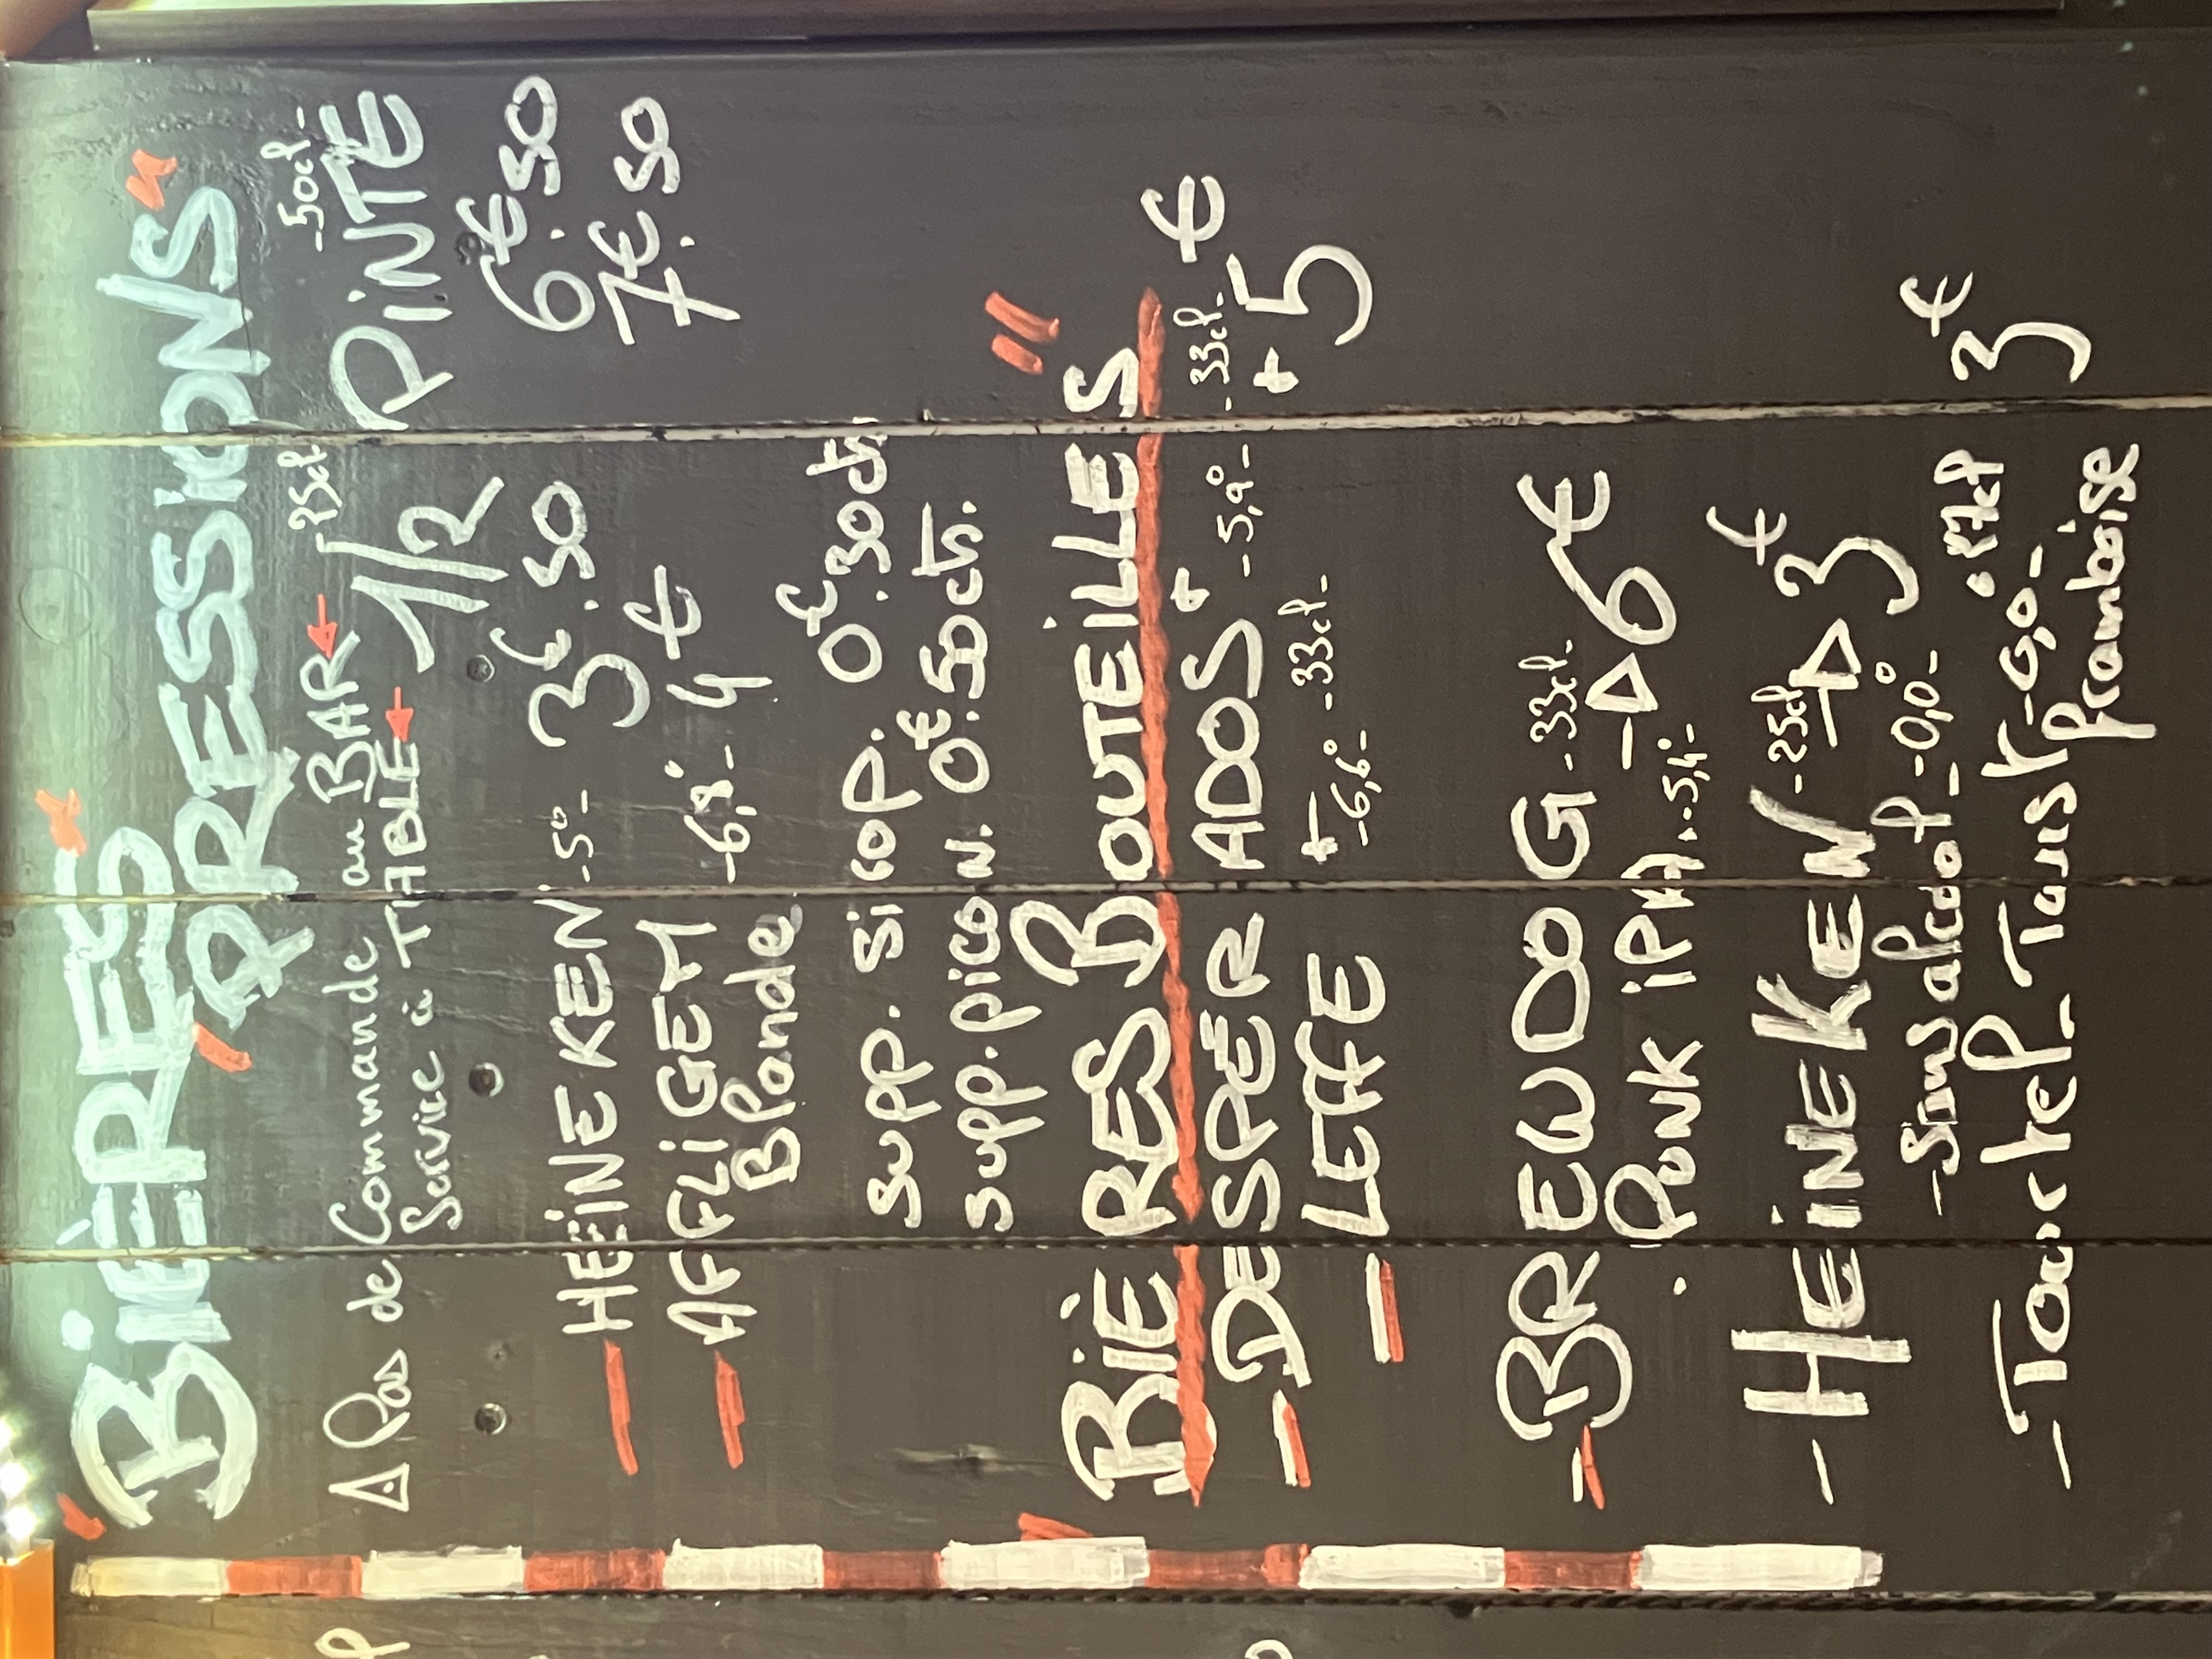 "BIÈRES
"PRESSIONS"
⚠ Pas de Commande au BAR
Service à TABLE
-25cl- -50cl-
1/2 PINTE
- HEINEKEN -5°- 3€.50 6€.50
- AFFLIGEM -6,8°- 4€ 7€.50
Blonde
supp. SiROP. 0€.30cts
supp. picon. 0€.50cts.
"BIÈRES BOUTEILLES"
- DESPÉRADOS + -5,9°- -33cl-
- LEFFE + -6,6°- -33cl- + 5€
- BREWDOG -33cl- → 6€
. PUNK iPA. -5,4°-
- HEINEKEN -25cl- → 3€
- Sans alcool - -0,0°-
- Tourtel - Twist -0,0°- 3€
framboise